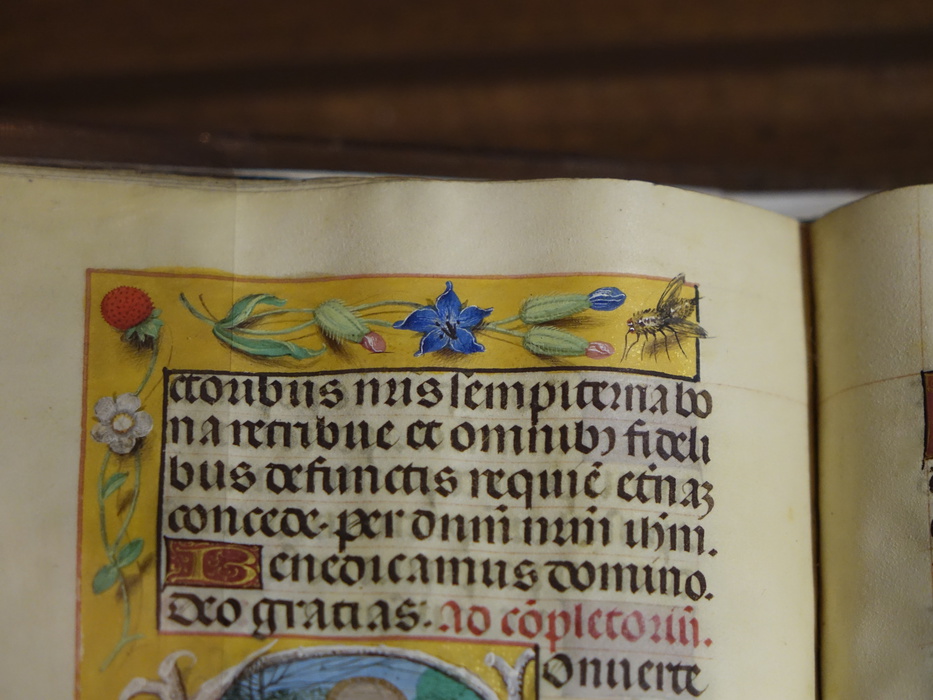 ctoribus nris sempiterna bo
na retribue et omnibꝫ fideli
bus defunctis requiē etnaꝫ
concede. per dnm̄ nrm̄ ihm̄.
Benedicamus domino.
Deo gracias. Ad cōpletoriū.
Onuerte